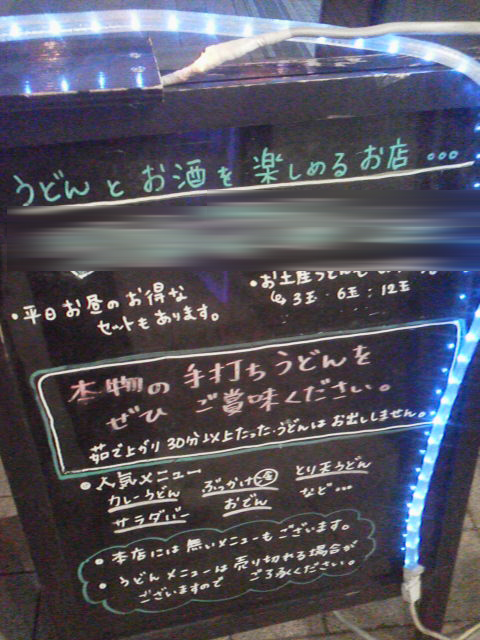 うどんとお酒を楽しめるお店…
・平日お昼のお得な
セットもあります。
・お土産うどんも
3玉 6玉 12玉
本物の手打ちうどんを
ぜひ ご賞味ください。
茹で上がり30分以上たったうどんはお出ししません。
・人気メニュー
カレーうどん ぶっかけ とり天うどん
サラダバー おでん など…
・本店には無いメニューもございます。
・うどんメニューは売り切れる場合が
ございますので ご了承ください。